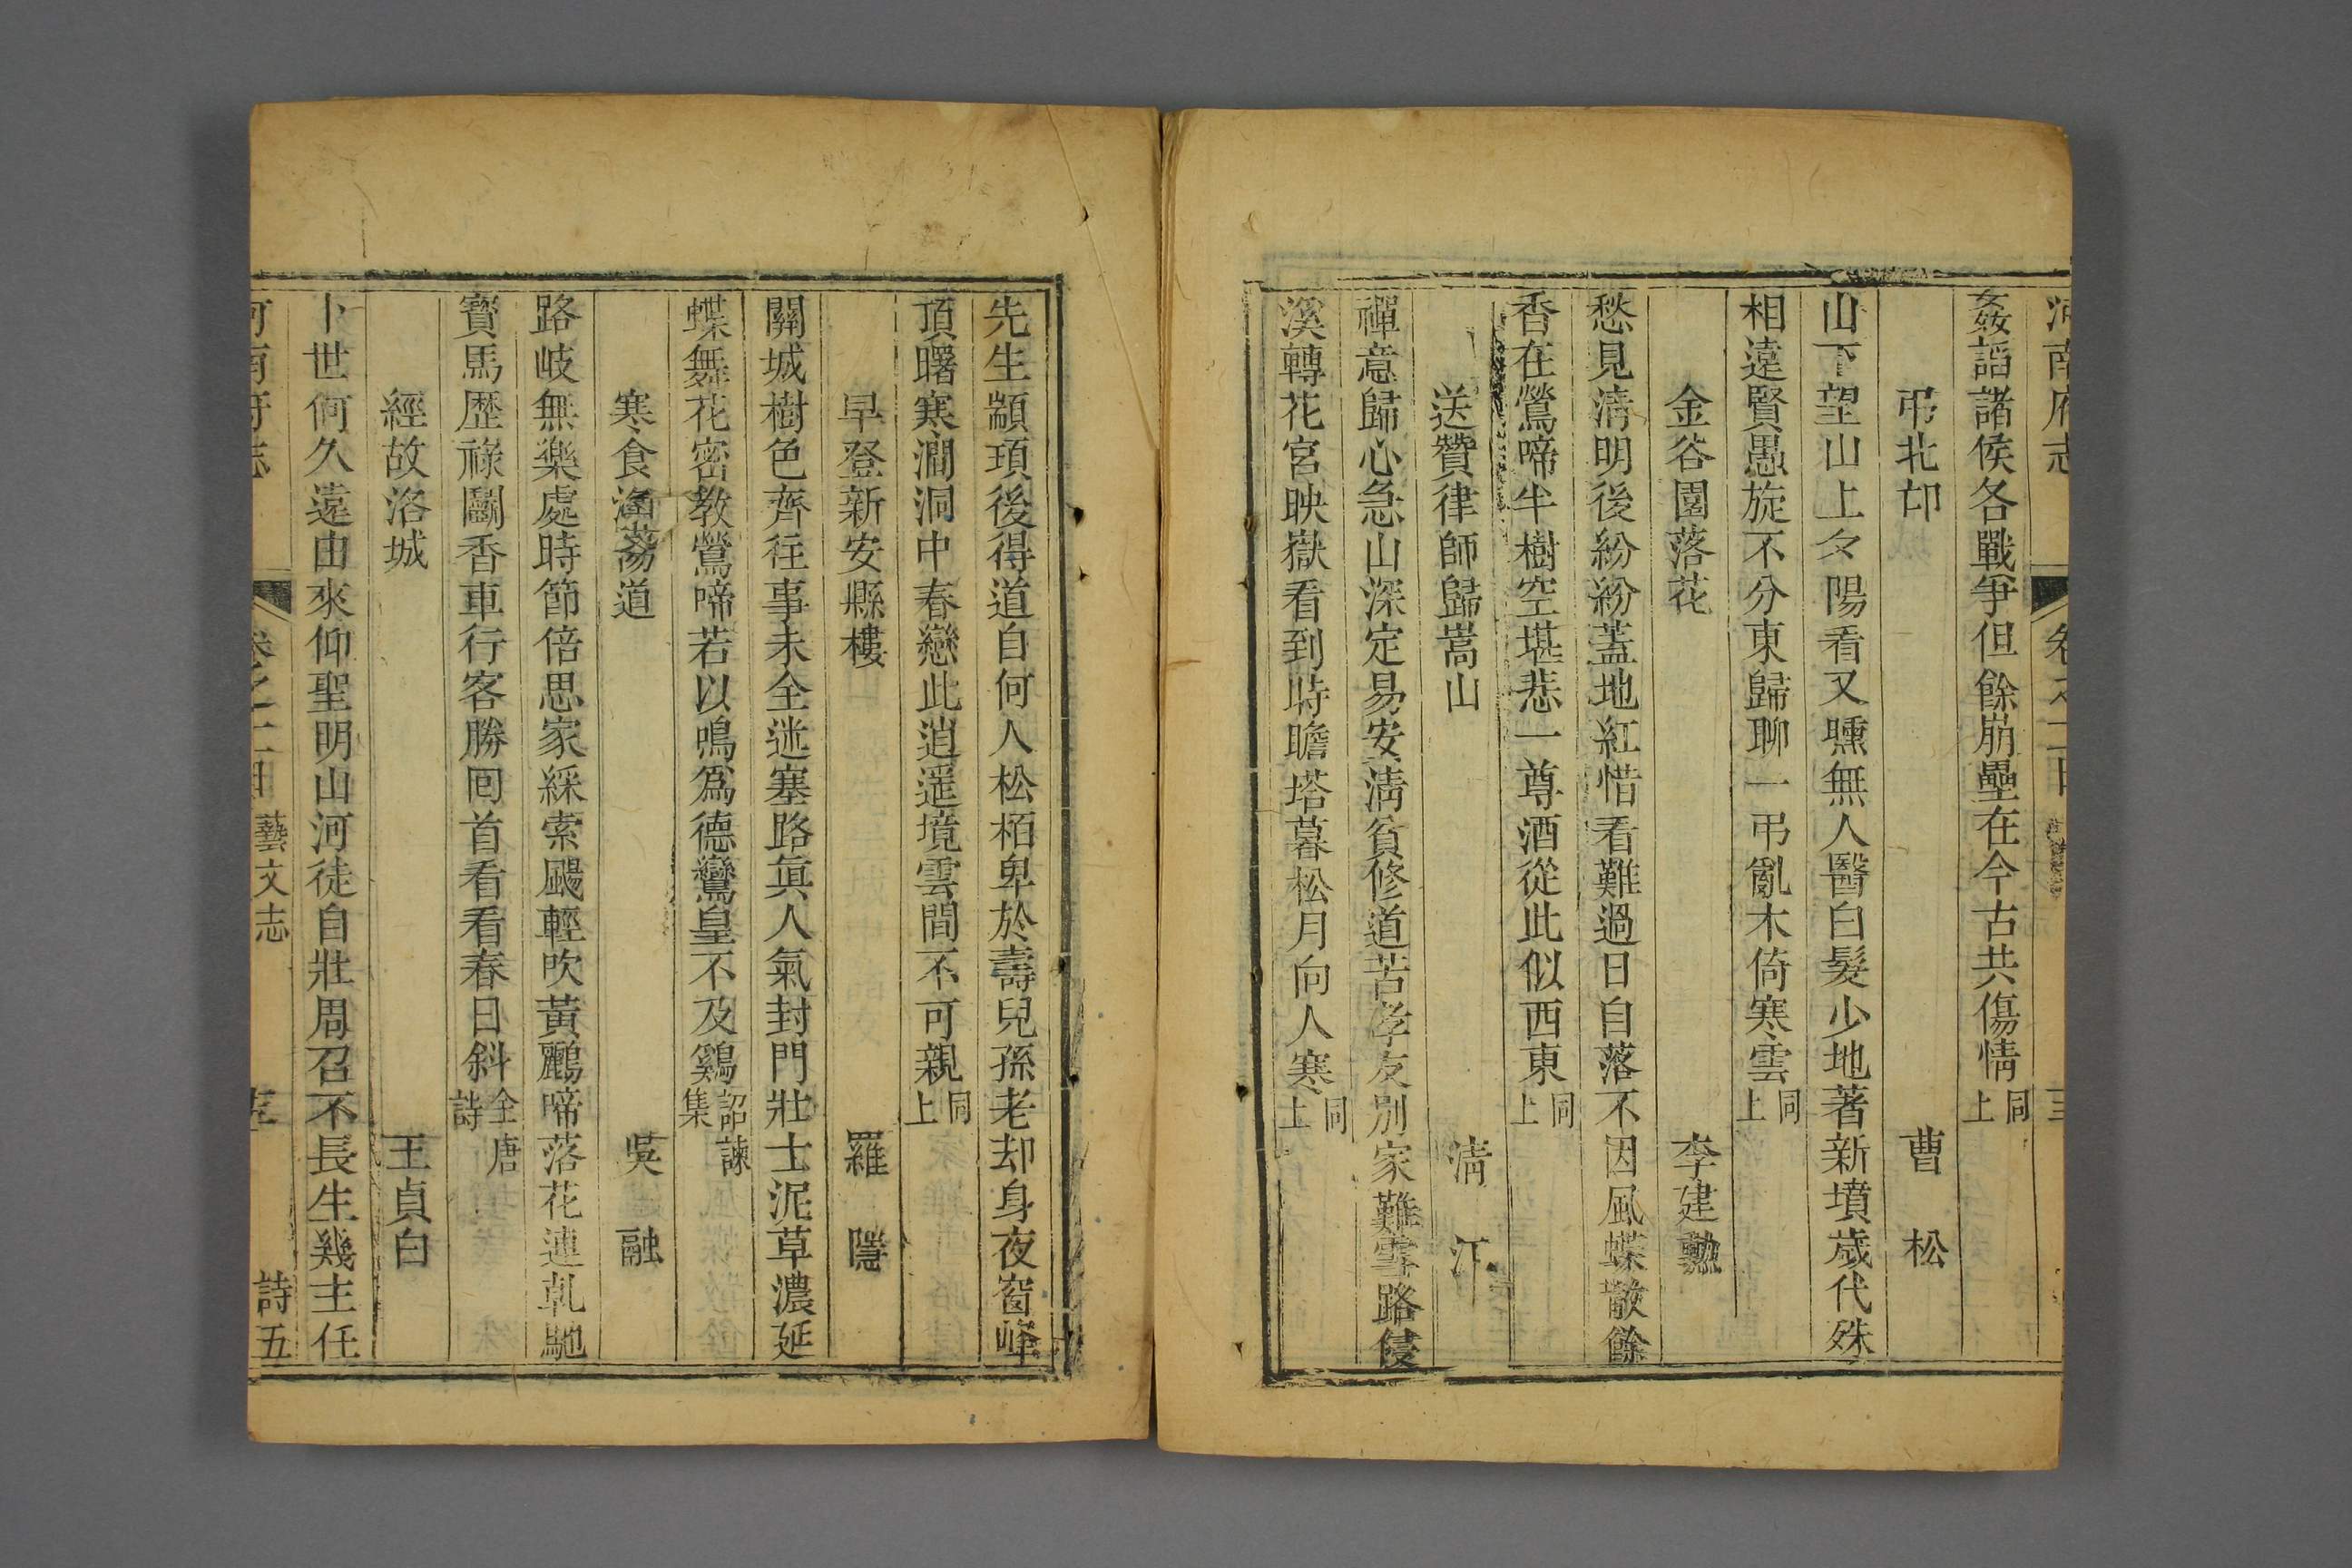 河南府志 卷之二
姦謟諸侯各戰爭但餘崩壘在今古共傷情同上
弔北邙 曹松
山下望山上夕陽看又曛無人醫白髮少地著新墳歲代殊
相遠賢愚旋不分東歸聊一弔亂木倚寒雲同上
金谷園落花 李建勲
愁見清明後紛紛蓋地紅惜看難過日自落不因風蝶散餘
香在鶯啼半樹空堪悲一尊酒從此似西東同上
送贊律師歸嵩山 清江
禪意歸心急山深定易安清貧修道苦孝友別家難雪路侵
溪轉花宮映嶽看到時瞻塔暮松月向人寒同上
先生顓頊後得道自何人松栢卑於壽兒孫老却身夜窗峰
頂曙寒澗洞中春戀此逍遥境雲間不可親同上
早登新安縣樓 羅隱
關城樹色齊徃事未全迷塞路眞人氣封門壯士泥草濃延
蝶舞花密教鶯啼若以鳴爲德鸞皇不及鷄韶諫集
寒食洛陽道 吳融
路岐無樂處時節倍思家綵索颺輕吹黃鸝啼落花連乹馳
寶馬歷祿鬭香車行客勝囘首看看春日斜全唐詩
經故洛城 王貞白
卜世何久遠由來仰聖明山河徒自壯周召不長生幾主任
河南府志 卷之 藝文志 詩五